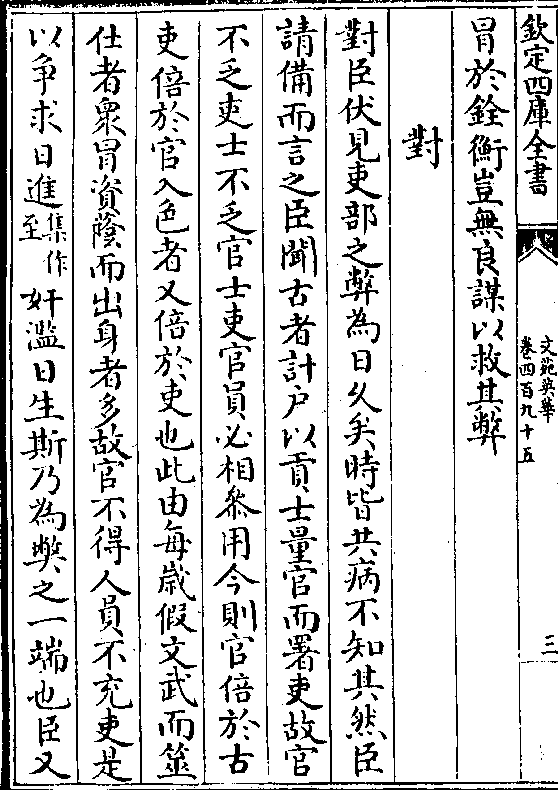 欽定四庫全書
文苑英華
卷四百九十五
三
冒於銓衡豈無良謀以救其弊
對
對臣伏見吏部之弊為日久矣時皆共病不知其然臣
請備而言之臣聞古者計户以貢士量官而署吏故官
不乏吏士不乏官士吏官員必相叅用今則官倍於古
吏倍於官入色者又倍於吏也此由每嵗假文武而筮
仕者衆冒資蔭而出身者多故官不得人員不充吏是
以争求日進集作至奸濫日生斯乃為弊之一端也臣又